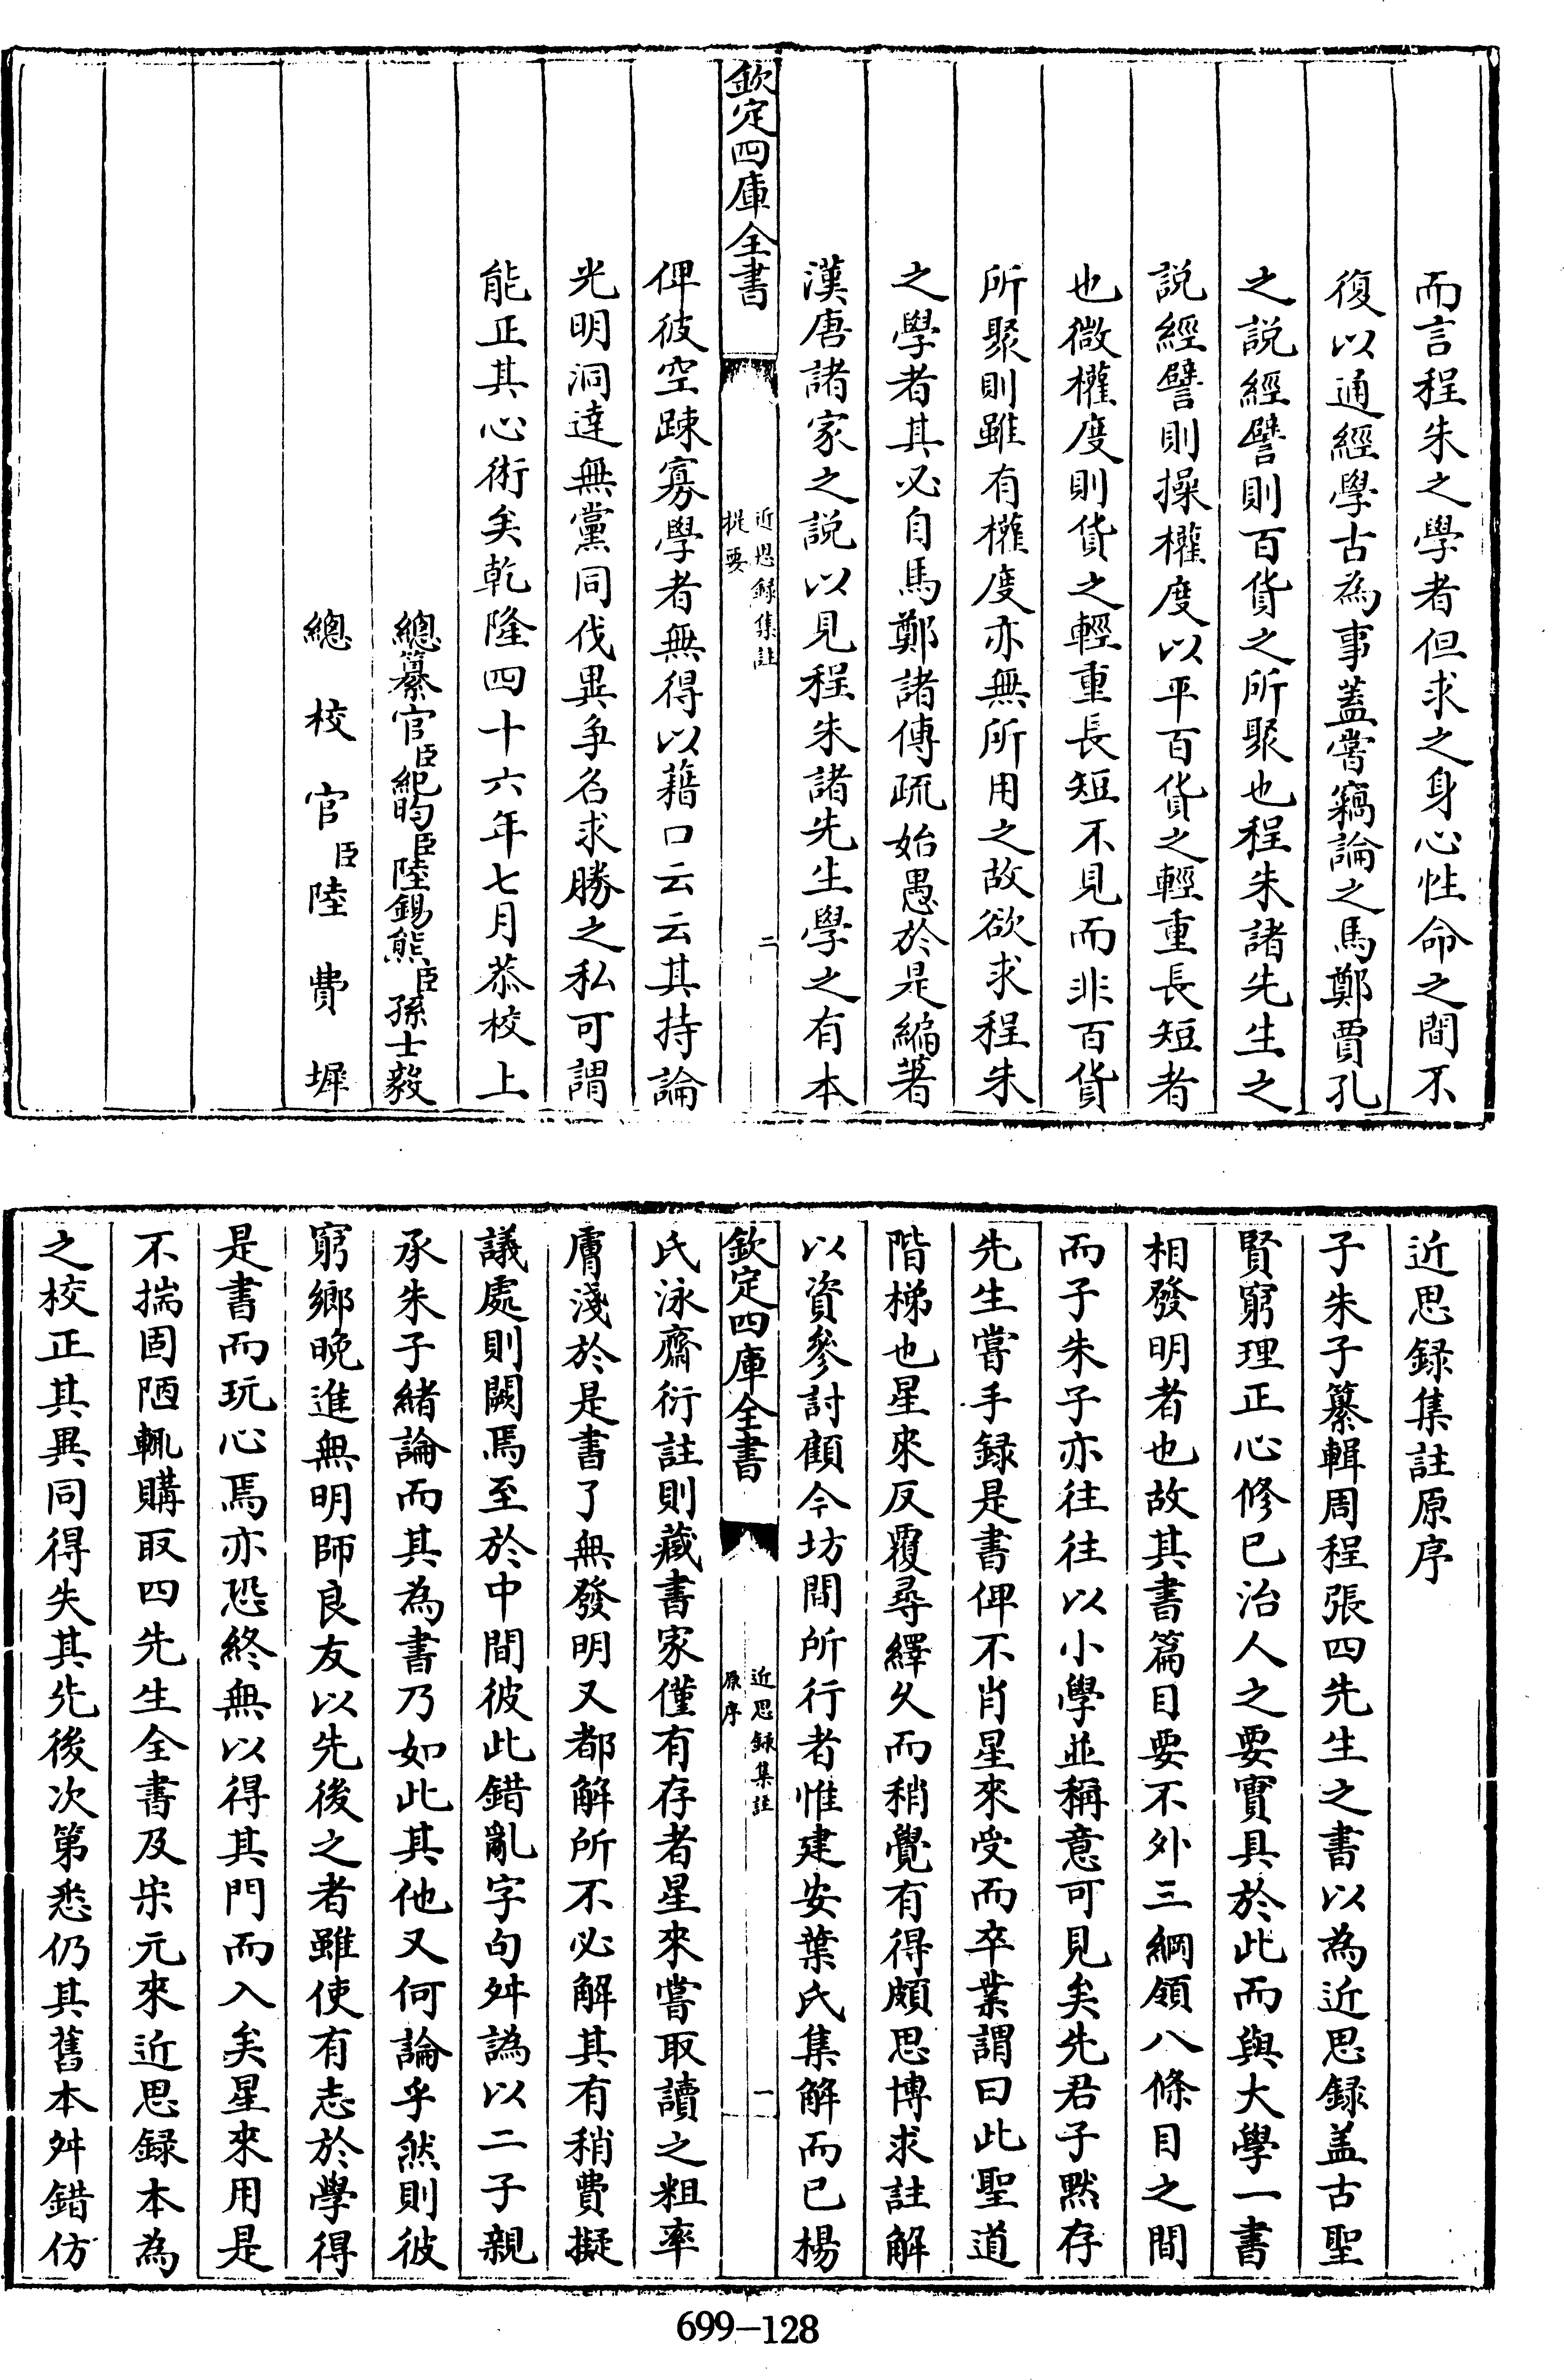 而言程朱之學者但求之身心性命之間不
復以通經學古為事蓋嘗竊論之馬鄭賈孔
之説經譬則百貨之所聚也程朱諸先生之
説經譬則操權度以平百貨之輕重長短者
也微權度則貨之輕重長短不見而非百貨
所聚則雖有權度亦無所用之故欲求程朱
之學者其必自馬鄭諸傳疏始愚於是編著
漢唐諸家之説以見程朱諸先生學之有本
欽定四庫全書
近思録集註
提要
二
俾彼空踈寡學者無得以藉口云云其持論
光明洞達無黨同伐異爭名求勝之私可謂
能正其心術矣乾隆四十六年七月恭校上
總纂官臣紀昀臣陸錫熊臣孫士毅
總校官臣陸費墀
近思録集註原序
子朱子纂輯周程張四先生之書以為近思録盖古聖
賢窮理正心修已治人之要實具於此而與大學一書
相發明者也故其書篇目要不外三綱領八條目之間
而子朱子亦往往以小學並稱意可見矣先君子黙存
先生嘗手録是書俾不肖星來受而卒業謂曰此聖道
階梯也星來反覆尋繹久而稍覺有得頗思博求註解
以資參討顧今坊間所行者惟建安葉氏集解而已楊
欽定四庫全書
近思録集註
原序
一
氏泳齋衍註則藏書家僅有存者星來嘗取讀之粗率
膚淺於是書了無發明又都解所不必解其有稍費擬
議處則闕焉至於中間彼此錯亂字句舛譌以二子親
承朱子緒論而其為書乃如此其他又何論乎然則彼
窮鄉晚進無明師良友以先後之者雖使有志於學得
是書而玩心焉亦恐終無以得其門而入矣星來用是
不揣固陋輒購取四先生全書及宋元來近思録本為
之校正其異同得失其先後次第悉仍其舊本舛錯仿
699-128